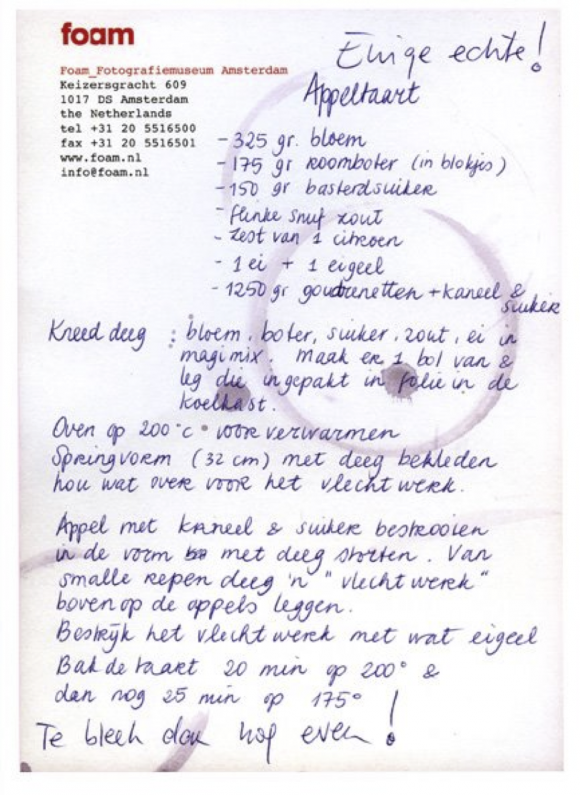 foam
Foam_Fotografiemuseum Amsterdam
Keizersgracht 609
1017 DS Amsterdam
the Netherlands
tel +31 20 5516500
fax +31 20 5516501
www.foam.nl
info@foam.nl
Enige echte!
Appeltaart
- 325 gr. bloem
- 175 gr roomboter (in blokjes)
- 150 gr basterdsuiker
- flinke snuf zout
- zest van 1 citroen
- 1 ei + 1 eigeel
- 1250 gr goudrenetten + kaneel &
suiker
Kneed deeg : bloem, boter, suiker, zout, ei in
magimix. Maak er 1 bol van &
leg die ingepakt in folie in de
koelkast.
Oven op 200°c voorverwarmen
Springvorm (32 cm) met deeg bekleden
hou wat over voor het vlechtwerk.
Appel met kaneel & suiker bestrooien
in de vorm met deeg storten. Van
smalle repen deeg 'n "vlechtwerk"
bovenop de appels leggen.
Bestrijk het vlechtwerk met wat eigeel
Bak de taart 20 min op 200° &
dan nog 25 min op 175°
Te bleek dan nog even!